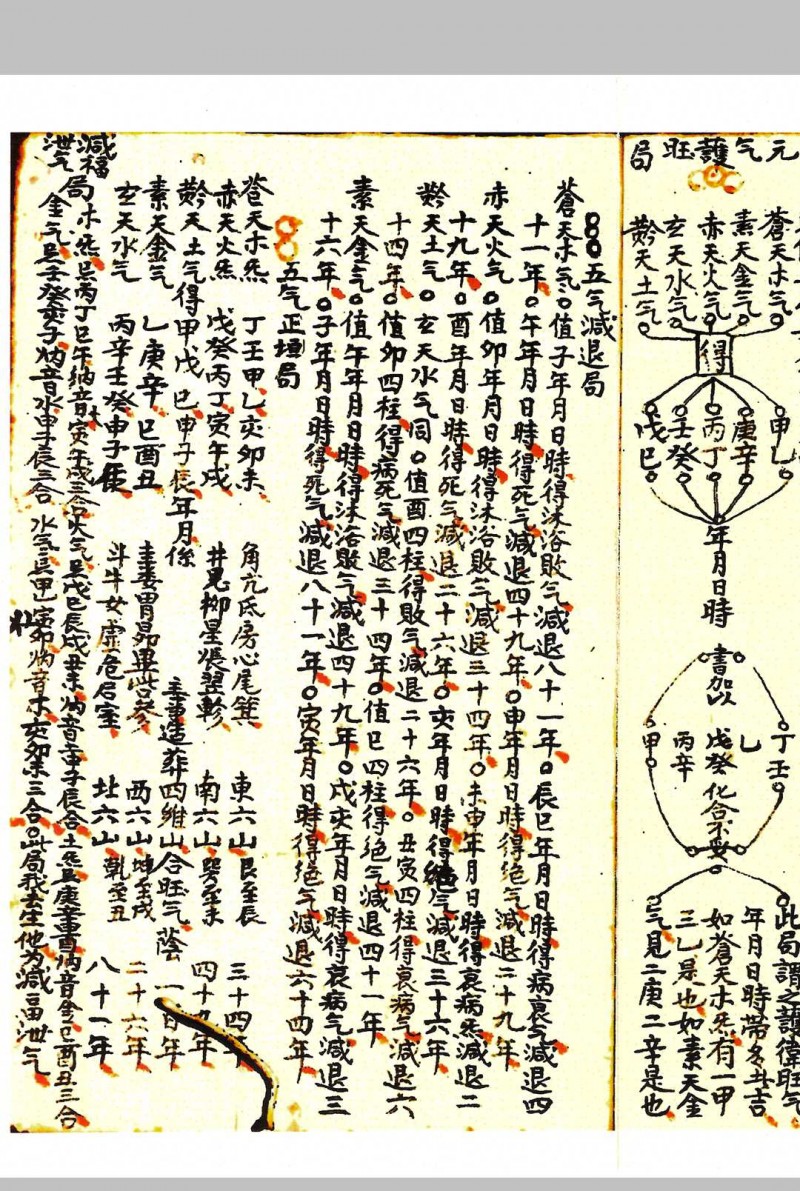 元气護旺局
蒼天木气
素天金气
赤天火气
玄天水气
黅天土气
得
甲乙
庚辛
丙丁
壬癸
戊己
年月日時
書加以
丁壬
乙
戊癸化合不妄
丙辛
甲
此局謂之護衛旺气
年月日時帶多此吉
如蒼天木炁有一甲
三乙是也如素天金
气見二庚二辛是也
五气減退局
蒼天木气值子年月日時得沐浴敗气減退八十一年辰巳年月日時得病衰气減退四
十一年午年月日時得死气減退四十九年申年月日時得绝气減退二十九年
赤天火气值卯年月日時得沐浴敗气減退三十四年未申年月日時得衰病炁減退二
十九年酉年月日時得死气減退二十六年亥年月日時得绝气減退三十六年
黅天土气玄天水气同值酉四柱得敗气減退二十六年丑寅四柱得衰病气減退六
十四年值卯四柱得病死气減退三十四年值巳四柱得绝气減退四十一年
素天金气值午年月日時得沐浴敗气減退四十九年戌亥年月日時得衰病气減退三
十六年子年月日時得死气減退八十一年寅年月日時得绝气減退六十四年
五气正垣局
蒼天木炁 丁壬甲乙亥卯未 角亢氐房心尾箕 東六山 艮至辰 三十四年
赤天火炁 戊癸丙丁寅午戌 井鬼柳星張翌軫 南六山 巽至未 四十九年
黅天土气得甲戊己申子辰年月係 主事造葬四維山合旺气蔭 一百年
素天金气 乙庚辛巳酉丑 奎婁胃昴畢觜參 西六山 坤至戌 二十六年
玄天水气 丙辛壬癸申子辰 斗牛女虛危尾室 北六山 乾至丑 八十一年
減福泄气局木炁忌丙丁巳午納音寅午戌三合火气忌戊己辰戌丑未納音土申子辰合土炁忌庚辛申酉納音金巳酉丑三合
金气忌壬癸亥子納音水申子辰三合水气忌甲乙寅卯納音木亥卯未三合此局我去生他为減福泄气